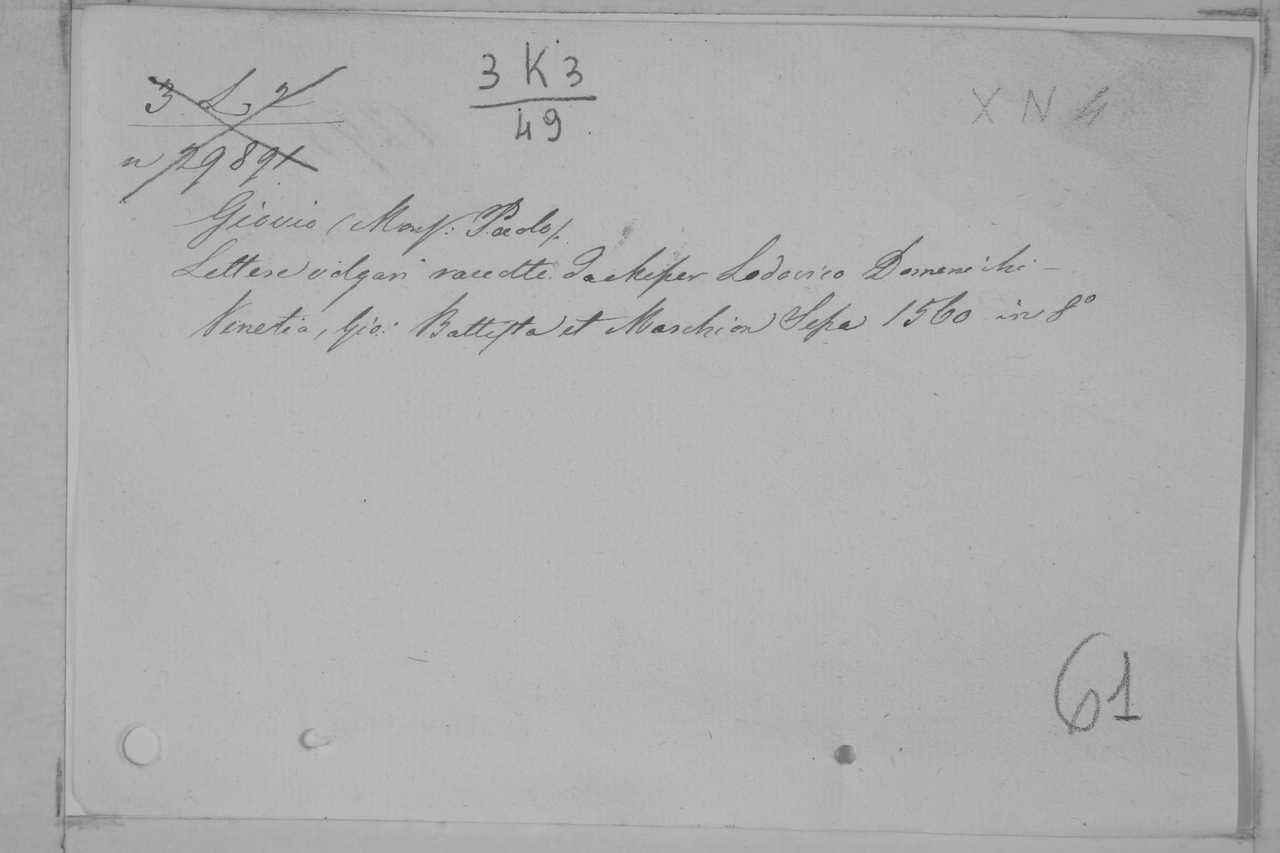 3 K 3
49
3 L 2
n 29891
X N 4
Giovio (Monſ: Paolo).
Lettere volgari raccolte per Lodovico Domenichi –
Venetia, Gio: Battiſta et Marchion Seſsa 1560 in 8°
61